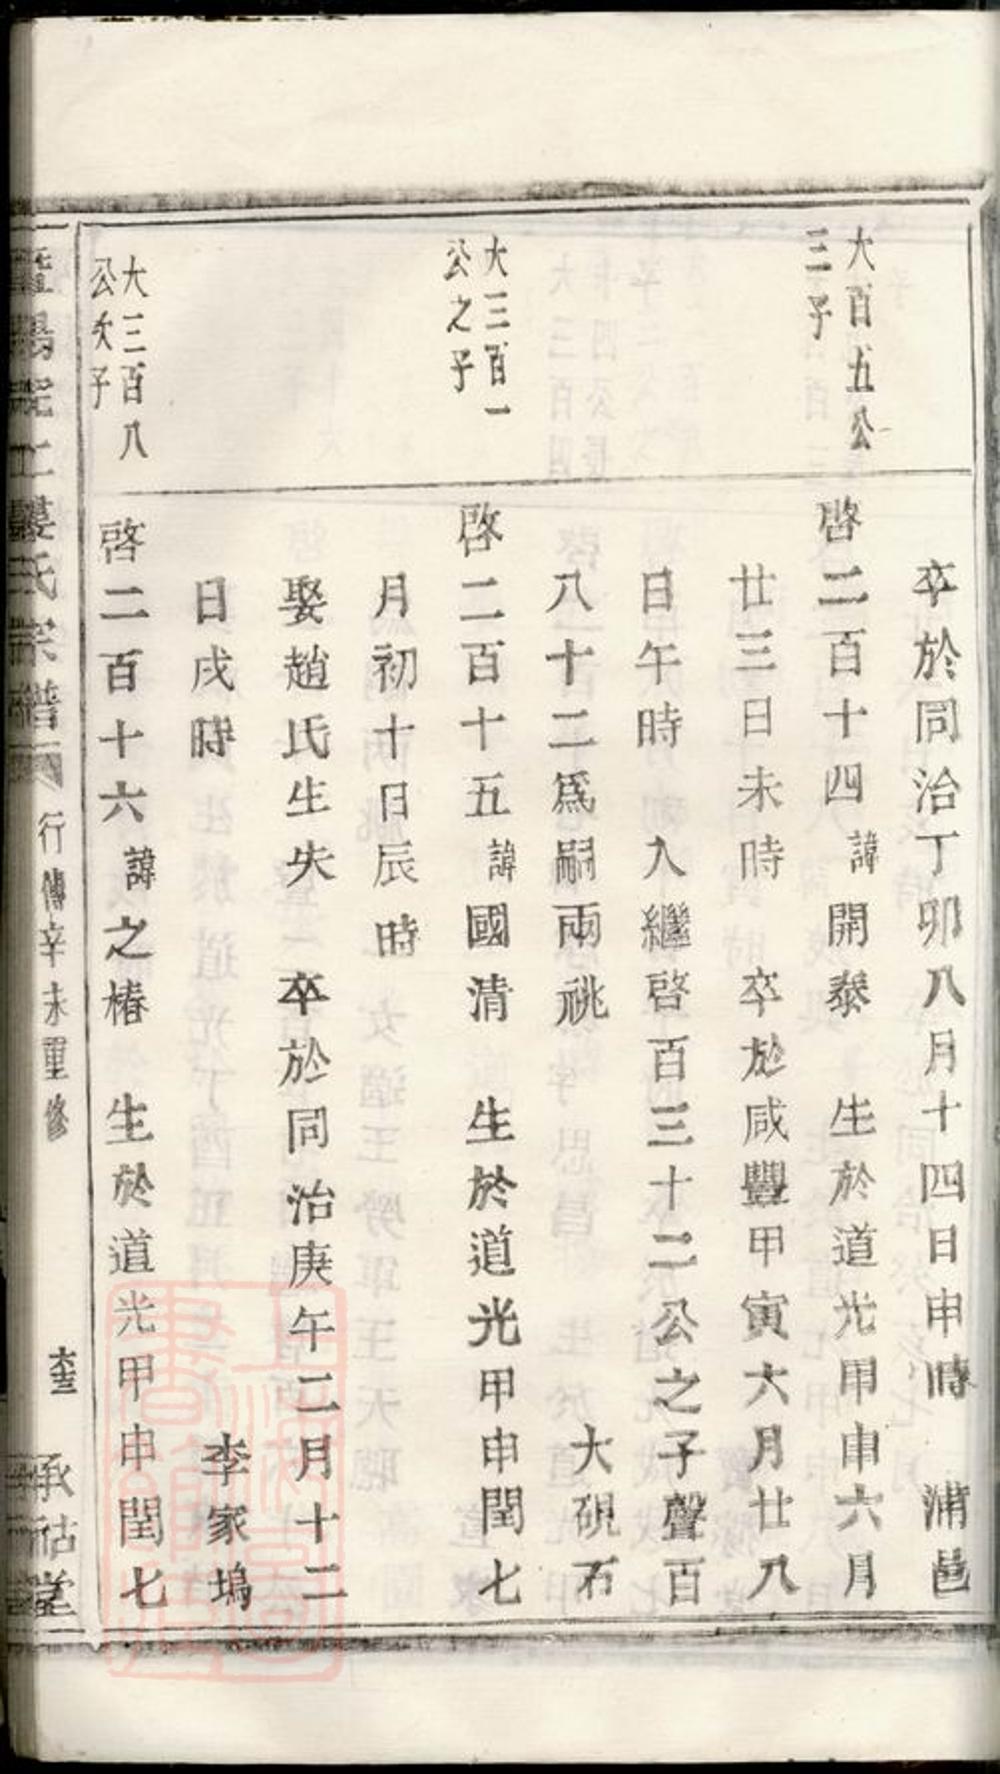 卒於同治丁卯八月十四日申時　浦邑
大百五公
三子
啓二百十四諱開泰　生於道光甲申六月
廿三日未時　卒於咸豐甲寅六月廿八
日午時　入繼啓百三十二公之子聲百
八十二爲嗣兩祧　大硯石
大三百一
公之子
啓二百十五諱國清　生於道光甲申閏七
月初十日辰時
娶趙氏生失　卒於同治庚午二月十二
日戌時　李家塢
大三百八
公次子
啓二百十六諱之椿　生於道光甲申閏七
樓氏宗譜　行傳辛未重修　承祜堂